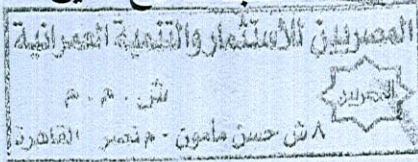 المصريين للاستثمار والتنمية العمرانية
ش . م . م
المصريين
٨ ش حسن مأمون - م نصر القاهرة